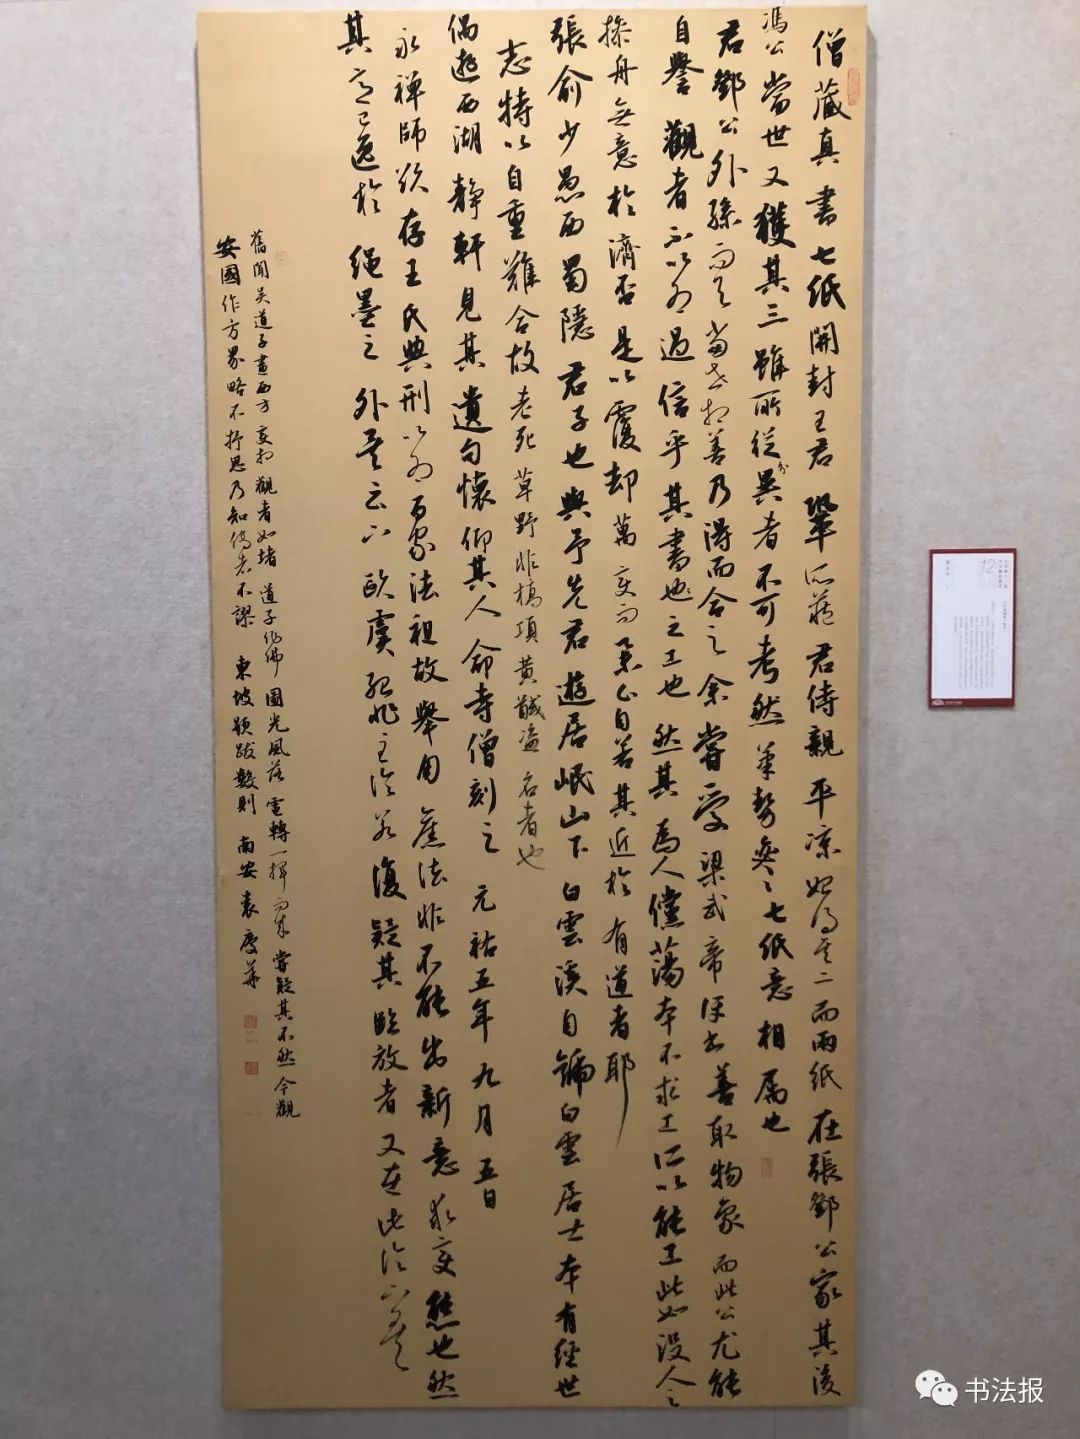 僧藏真書七紙開封王君鞏所藏君侍親平涼始得其二而兩紙在張鄧公家其後
馮公當世又獲其三雖所從分異者不可考然筆勢奕々七紙意相屬也
君鄧公外孫而與當世相善乃得而合之余嘗愛梁武帝評書善取物象而此公尤能
自譽觀者不以為過信乎其書也之工也然其為人儻蕩本不求工所以能工此如沒人之
操舟無意於濟否是以覆却萬變而舉止自若其近於有道者耶
張俞少愚西蜀隱君子也與予先君遊居岷山下白雲溪自號白雲居士本有經世
志特以自重難合故老死草野非槁項黃馘盜名者也
偶遊西湖靜軒見其遺句懷仰其人命寺僧刻之元祐五年九月五日
永禪師欲存王氏典刑以為百家法祖故舉用舊法非不能出新意求變態也然
其意已逸於繩墨之外矣云下歐虞殆非至論若復疑其臨放者又在此論下矣
舊聞吳道子畫西方變相觀者如堵道子作佛圓光風落電轉一揮而成嘗疑其不然今觀
安國作方界略不抒思乃知傳者不謬 東坡題跋數則 南安袁慶華
12
书法报